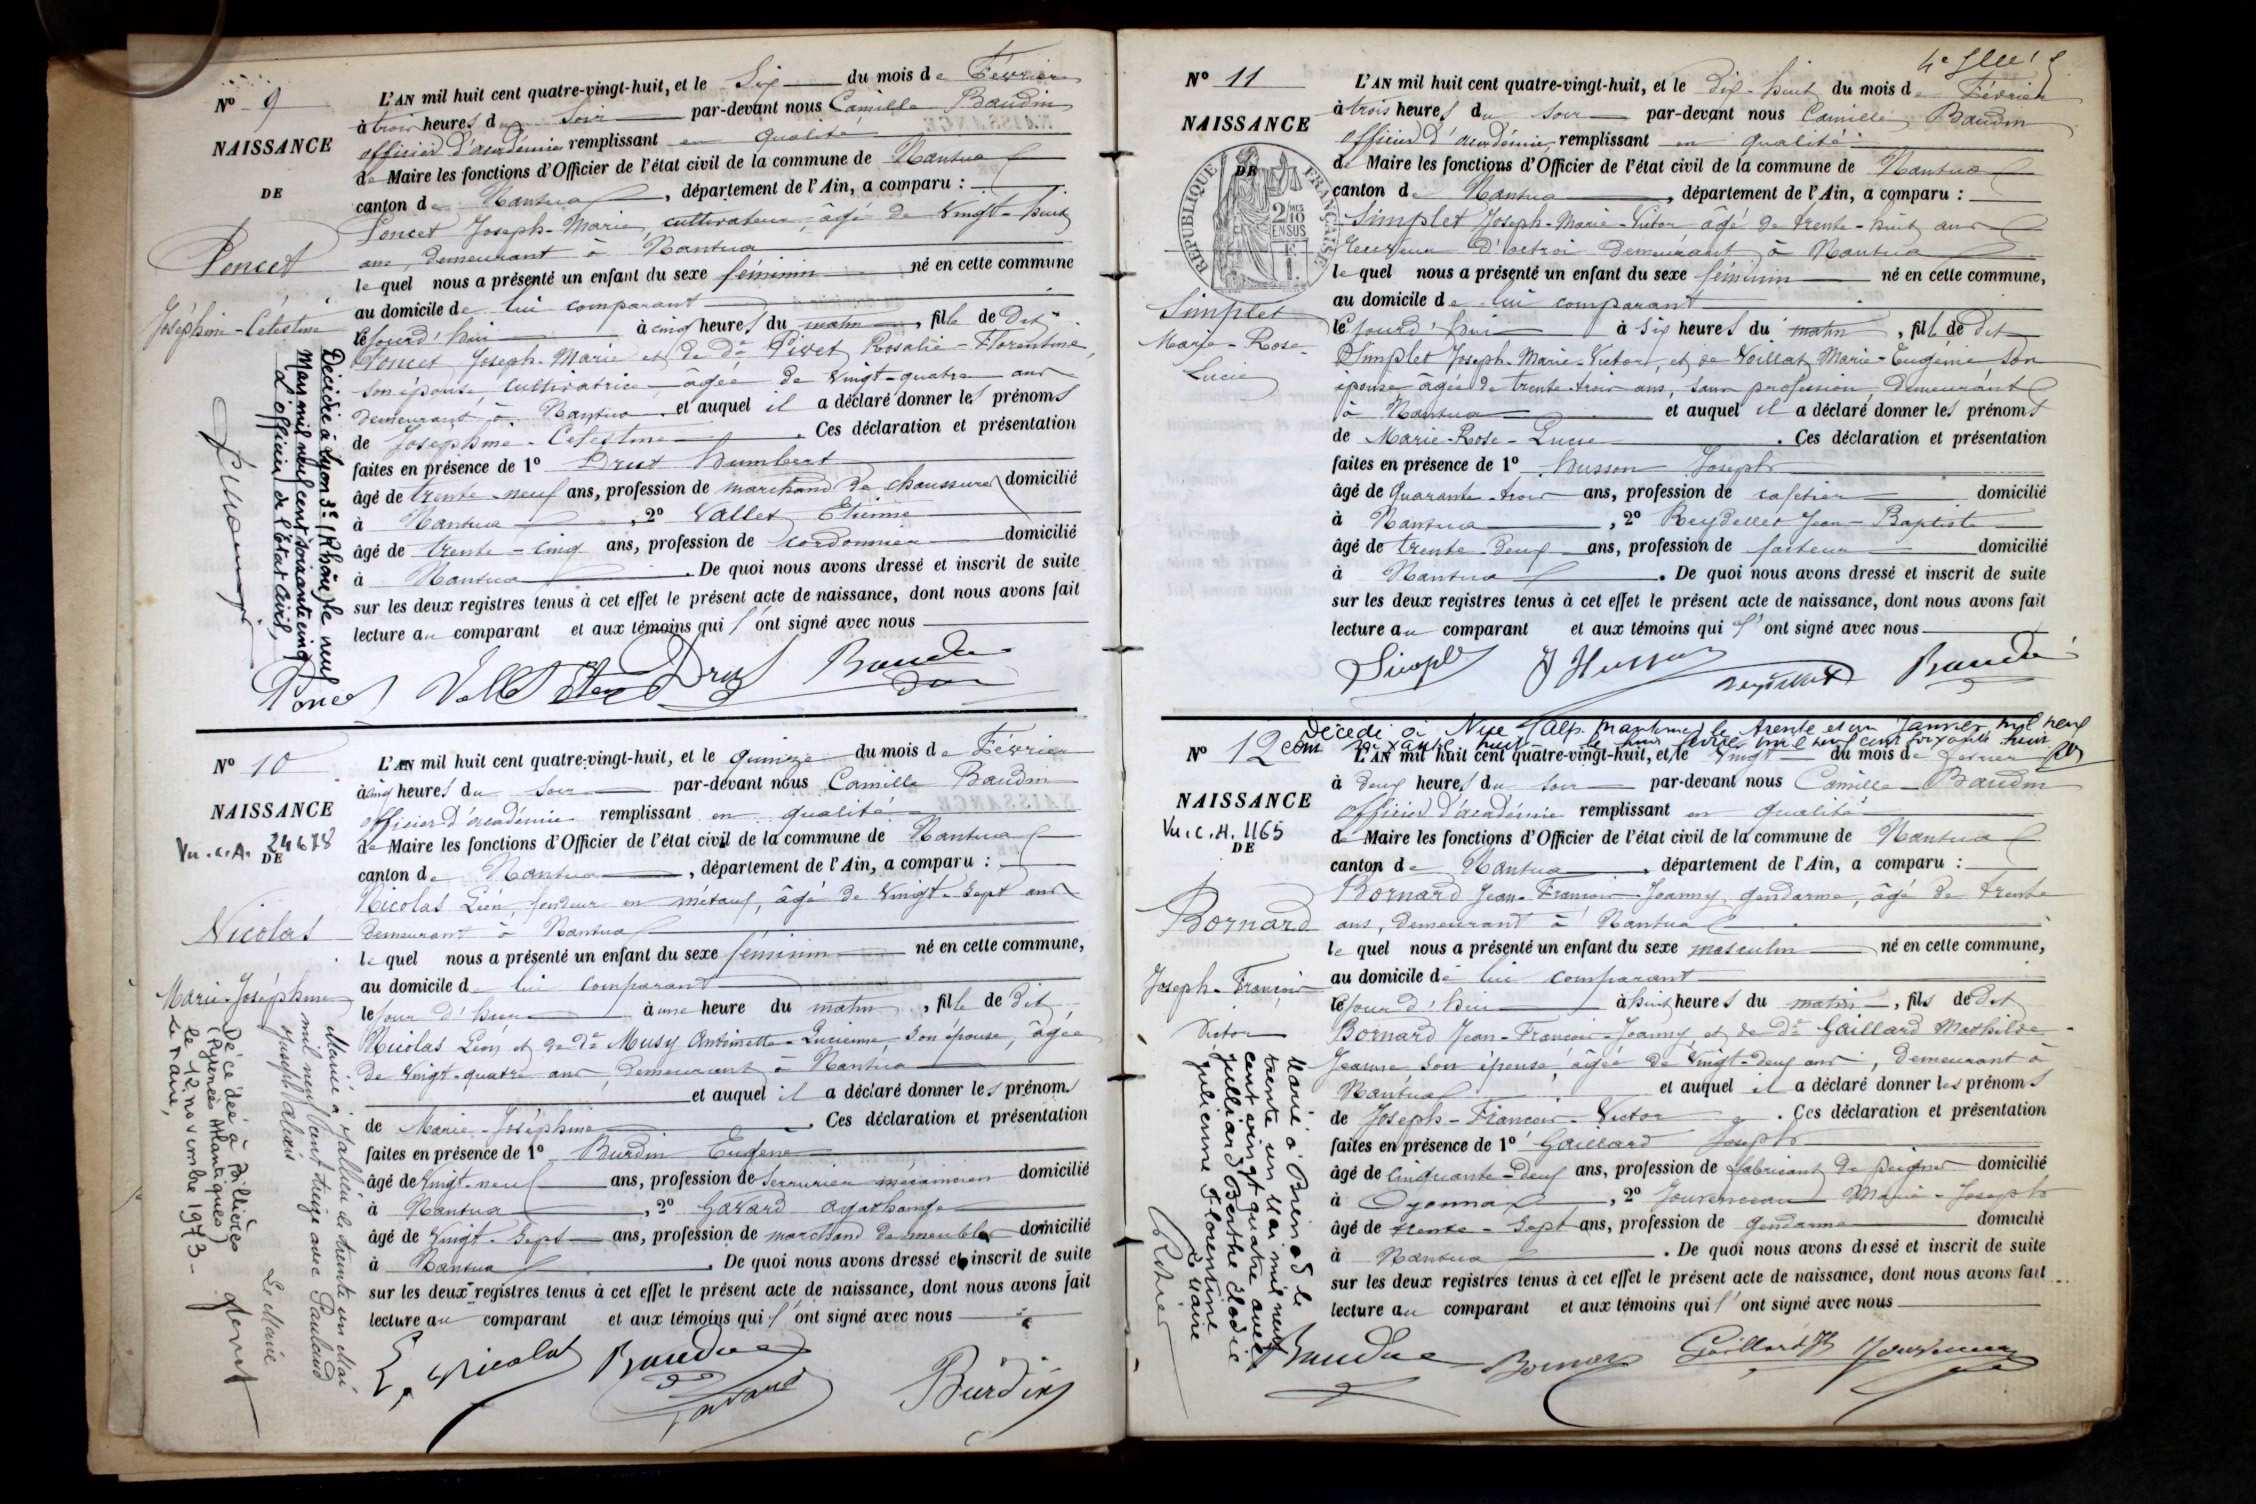 Nº 9
NAISSANCE
DE
Poncet
Joséphine-Célestine
L'AN mil huit cent quatre-vingt-huit, et le Six du mois de Février
à trois heures du soir par-devant nous Camille Baudin
officier d'académie remplissant en qualité
de Maire les fonctions d'Officier de l'état civil de la commune de Nantua
canton de Nantua, département de l'Ain, a comparu :
Poncet Joseph-Marie, cultivateur, âgé de Vingt-huit
ans, demeurant à Nantua
lequel nous a présenté un enfant du sexe féminin né en cette commune
au domicile de lui comparant
le jourd'hui à cinq heures du matin, fille de dit
Poncet Joseph-Marie et de de Pivet Rosalie-Florentine,
son épouse, cultivatrice âgée de Vingt-quatre ans
demeurant à Nantua et auquel il a déclaré donner les prénoms
de Joséphine-Célestine. Ces déclaration et présentation
faites en présence de 1º Drut Humbert
âgé de trente-neuf ans, profession de marchand de chaussures domicilié
à Nantua, 2º Vallet Etienne
âgé de trente-cinq ans, profession de cordonnier domicilié
à Nantua. De quoi nous avons dressé et inscrit de suite
sur les deux registres tenus à cet effet le présent acte de naissance, dont nous avons fait
lecture au comparant et aux témoins qui l'ont signé avec nous
Décédée à Lyon 3e (Rhône) le neuf
Mars mil neuf cent soixante cinq
L'officier de l'Etat Civil,
Poncet Vallet Drut Baudin
Nº 10
NAISSANCE
Vu.c.A. 24678
DE
Nicolas
Marie-Joséphine
L'AN mil huit cent quatre-vingt-huit, et le quinze du mois de Février
à cinq heures du soir par-devant nous Camille Baudin
officier d'académie remplissant en qualité
de Maire les fonctions d'Officier de l'état civil de la commune de Nantua
canton de Nantua, département de l'Ain, a comparu :
Nicolas Léon, fondeur en métaux, âgé de Vingt-Sept ans
demeurant à Nantua
lequel nous a présenté un enfant du sexe féminin né en cette commune,
au domicile de lui comparant
le jour d'hui à une heure du matin, fille de dit
Nicolas Léon et de de Musy Antoinette-Lucienne, son épouse, âgée
de Vingt-quatre ans, demeurant à Nantua
et auquel il a déclaré donner les prénoms
de Marie-Joséphine. Ces déclaration et présentation
faites en présence de 1º Burdin Eugène
âgé de Vingt-neuf ans, profession de Serrurier mécanicien domicilié
à Nantua, 2º Gavard Agathange
âgé de Vingt-Sept ans, profession de marchand de meubles domicilié
à Nantua. De quoi nous avons dressé et inscrit de suite
sur les deux registres tenus à cet effet le présent acte de naissance, dont nous avons fait
lecture au comparant et aux témoins qui l'ont signé avec nous
Mariée à Jallieu le trente un Mai
mil neuf cent treize avec Paulaud
Joseph
Le Maire
Décédée à Billières
(Pyrénées Atlantiques)
le 12 novembre 1973-
Le Maire,
L. Nicolas Baudin Gavard Burdin
4e
Nº 11
NAISSANCE
DE
RÉPUBLIQUE FRANÇAISE
2/10 EN SUS
Simplet
Marie-Rose-
Lucie
L'AN mil huit cent quatre-vingt-huit, et le dix-huit du mois de Février
à trois heures du soir par-devant nous Camille Baudin
officier d'académie, remplissant en qualité
de Maire les fonctions d'Officier de l'état civil de la commune de Nantua
canton de Nantua, département de l'Ain, a comparu :
Simplet Joseph-Marie-Victor âgé de trente-huit ans
receveur d'octroi demeurant à Nantua
lequel nous a présenté un enfant du sexe féminin né en cette commune,
au domicile de lui comparant
le jourd'hui à six heures du matin, fille de dit
Simplet Joseph-Marie-Victor, et de Voillat Marie-Eugénie son
épouse âgée de trente-trois ans, sans profession, demeurant
à Nantua et auquel il a déclaré donner les prénoms
de Marie-Rose-Lucie. Ces déclaration et présentation
faites en présence de 1º Husson Joseph
âgé de Quarante-trois ans, profession de cafetier domicilié
à Nantua, 2º Reydellet Jean-Baptiste
âgé de trente-deux ans, profession de facteur domicilié
à Nantua. De quoi nous avons dressé et inscrit de suite
sur les deux registres tenus à cet effet le présent acte de naissance, dont nous avons fait
lecture au comparant et aux témoins qui l'ont signé avec nous
Simplet J Husson Reydellet Baudin
Décédé à Nice (Alp. Maritimes) le trente et un Janvier mil neuf
cent soixante huit
Nº 12
NAISSANCE
Vu.c.A. 1165
DE
Bornard
Joseph-François
Victor
L'AN mil huit cent quatre-vingt-huit, et le Vingt du mois de Février
à deux heures du soir par-devant nous Camille Baudin
officier d'académie remplissant en qualité
de Maire les fonctions d'Officier de l'état civil de la commune de Nantua
canton de Nantua, département de l'Ain, a comparu :
Bornard Jean-François-Joanny, gendarme, âgé de trente
ans, demeurant à Nantua
lequel nous a présenté un enfant du sexe masculin né en cette commune,
au domicile de lui comparant
le jour d'hui à huit heures du matin, fils de dit
Bornard Jean-François-Joanny et de de Gaillard Mathilde-
Jeanne, son épouse, âgée de Vingt-deux ans, demeurant à
Nantua et auquel il a déclaré donner les prénoms
de Joseph-François-Victor. Ces déclaration et présentation
faites en présence de 1º Gaillard Joseph
âgé de Cinquante-deux ans, profession de fabricant de peignes domicilié
à Oyonnax, 2º Jouvenceau Marie-Joseph
âgé de trente-Sept ans, profession de gendarme domicilié
à Nantua. De quoi nous avons dressé et inscrit de suite
sur les deux registres tenus à cet effet le présent acte de naissance, dont nous avons fait
lecture au comparant et aux témoins qui l'ont signé avec nous
Marié à Brénod le
trente un Mai mil neuf
cent vingt quatre avec
Julliard Berthe Elodie
Julienne Florentine
Le Maire
Baudin Bornard Gaillard Jh Jouvenceau